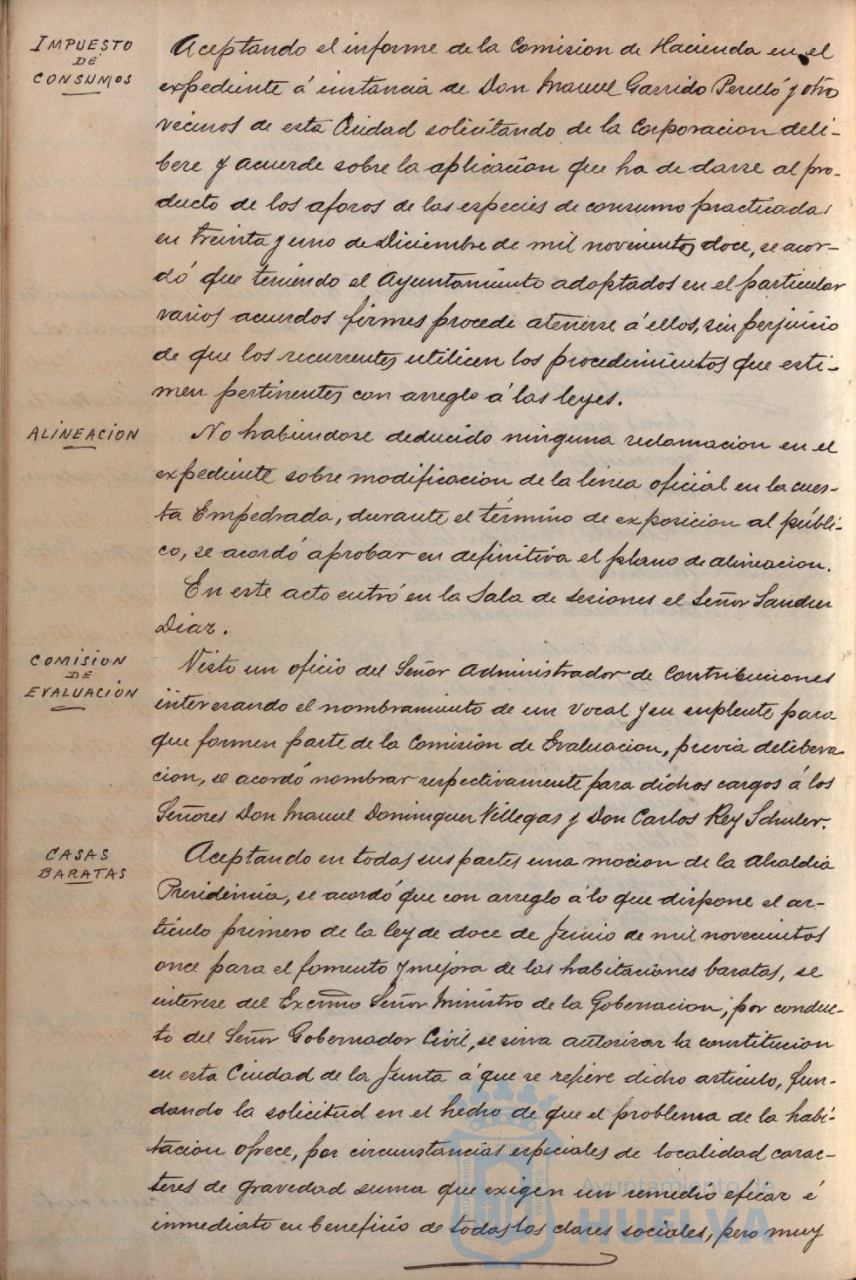 IMPUESTO
DE
CONSUMOS
Aceptando el informe de la Comision de Hacienda en el
expediente á instancia de Don Manuel Garrido Perelló y otro
vecinos de esta Ciudad solicitando de la Corporacion deli-
bere y acuerde sobre la aplicacion que ha de darse al pro-
ducto de los aforos de las especies de consumo practicada
en treinta y uno de Diciembre de mil novecientos doce, se acor-
dó que teniendo el Ayuntamiento adoptados en el particular
varios acuerdos firmes procede atenerse á ellos, sin perjuicio
de que los recurrentes utilicen los procedimientos que esti-
men pertinentes con arreglo á las leyes.
ALINEACION
No habiendose deducido ninguna reclamacion en el
expediente sobre modificacion de la linea oficial en la cues-
ta Empedrada, durante el término de exposicion al públi-
co, se acordó aprobar en definitiva el plano de alineacion.
En este acto entró en la Sala de sesiones el Señor
Diaz.
COMISION
DE
EVALUACIÓN
Visto un oficio del Señor Administrador de Contribuciones
interesando el nombramiento de un vocal y su suplente para
que formen parte de la Comision de Evaluacion, previa delibera
cion, se acordó nombrar respectivamente para dichos cargos á los
Señores Don Manuel Dominguez Villegas y Don Carlos Rey Schuler.
CASAS
BARATAS
Aceptando en todas sus partes una mocion de la Alcaldia
Presidencia, se acordó que con arreglo á lo que dispone el ar-
tículo primero de la ley de doce de Junio de mil novecientos
once para el fomento y mejora de las habitaciones baratas, se
interese del Excmo Señor Ministro de la Gobernacion, por conduc-
to del Señor Gobernador Civil, se sirva autorizar la constitucion
en esta Ciudad de la Junta á que se refiere dicho articulo, fun-
dando la solicitud en el hecho de que el problema de la habi-
tacion ofrece, por circunstancias especiales de localidad carac-
teres de gravedad suma que exigen un remedio eficaz é
inmediato en beneficio de todas las clases sociales, pero muy
Ayuntamiento de
HUELVA